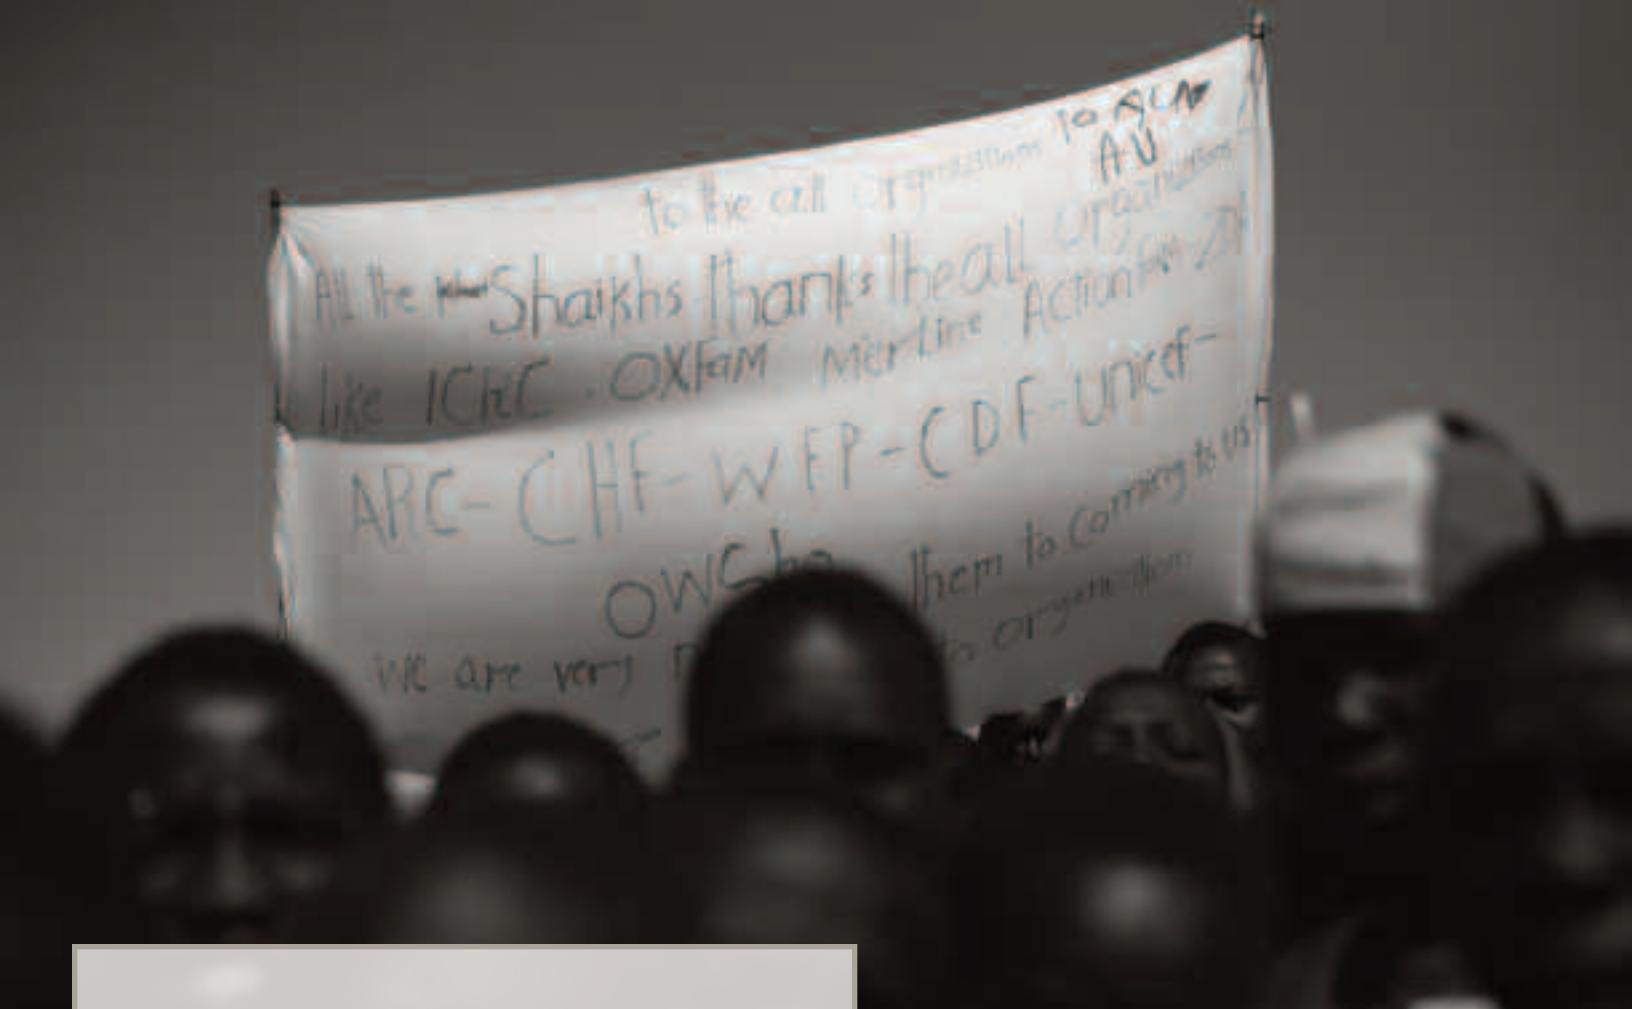 to the all organizations
AU
All the Shaikhs thanks the all organizations
like ICRC . OXFAM Merline Action
ARC - CHF - WFP - CDF - unicef -
OWS them to comming to us
we are very to